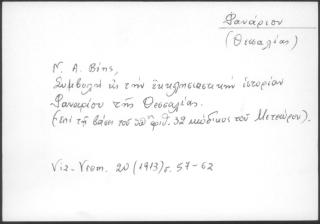 Φανάριον
(Θεσσαλίας)
Ν. Α. Βέης,
Συμβολὴ εἰς τὴν ἐκκλησιαστικὴν ἱστορίαν
Φαναρίου τῆς Θεσσαλίας.
(ἐπὶ τῇ βάσει τοῦ ὑπ' ἀριθ. 32 κώδικος τοῦ Μετεώρου).
Viz. Vrem. 20 (1913) σ. 57-62